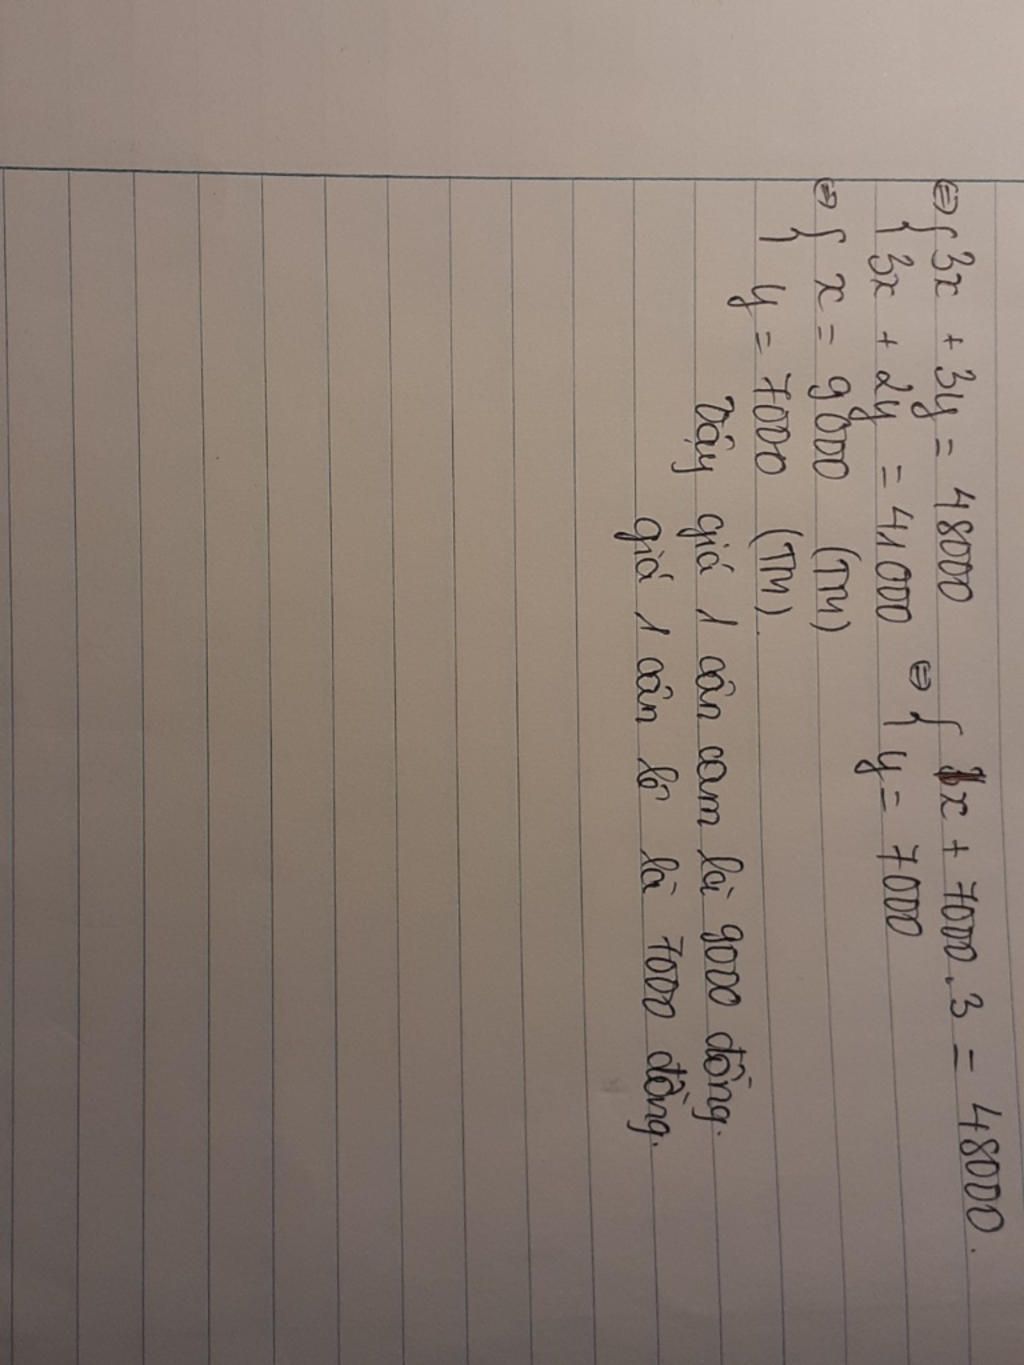 ⇔ { 3x + 3y = 48000
{ 3x + 2y = 41000 ⇔ { 3x + 7000.3 = 48000.
y = 7000
⇔ { x = 9000 (TM)
{ y = 7000 (TM).
Vậy giá 1 cân cam là 9000 đồng.
giá 1 cân lê là 7000 đồng.